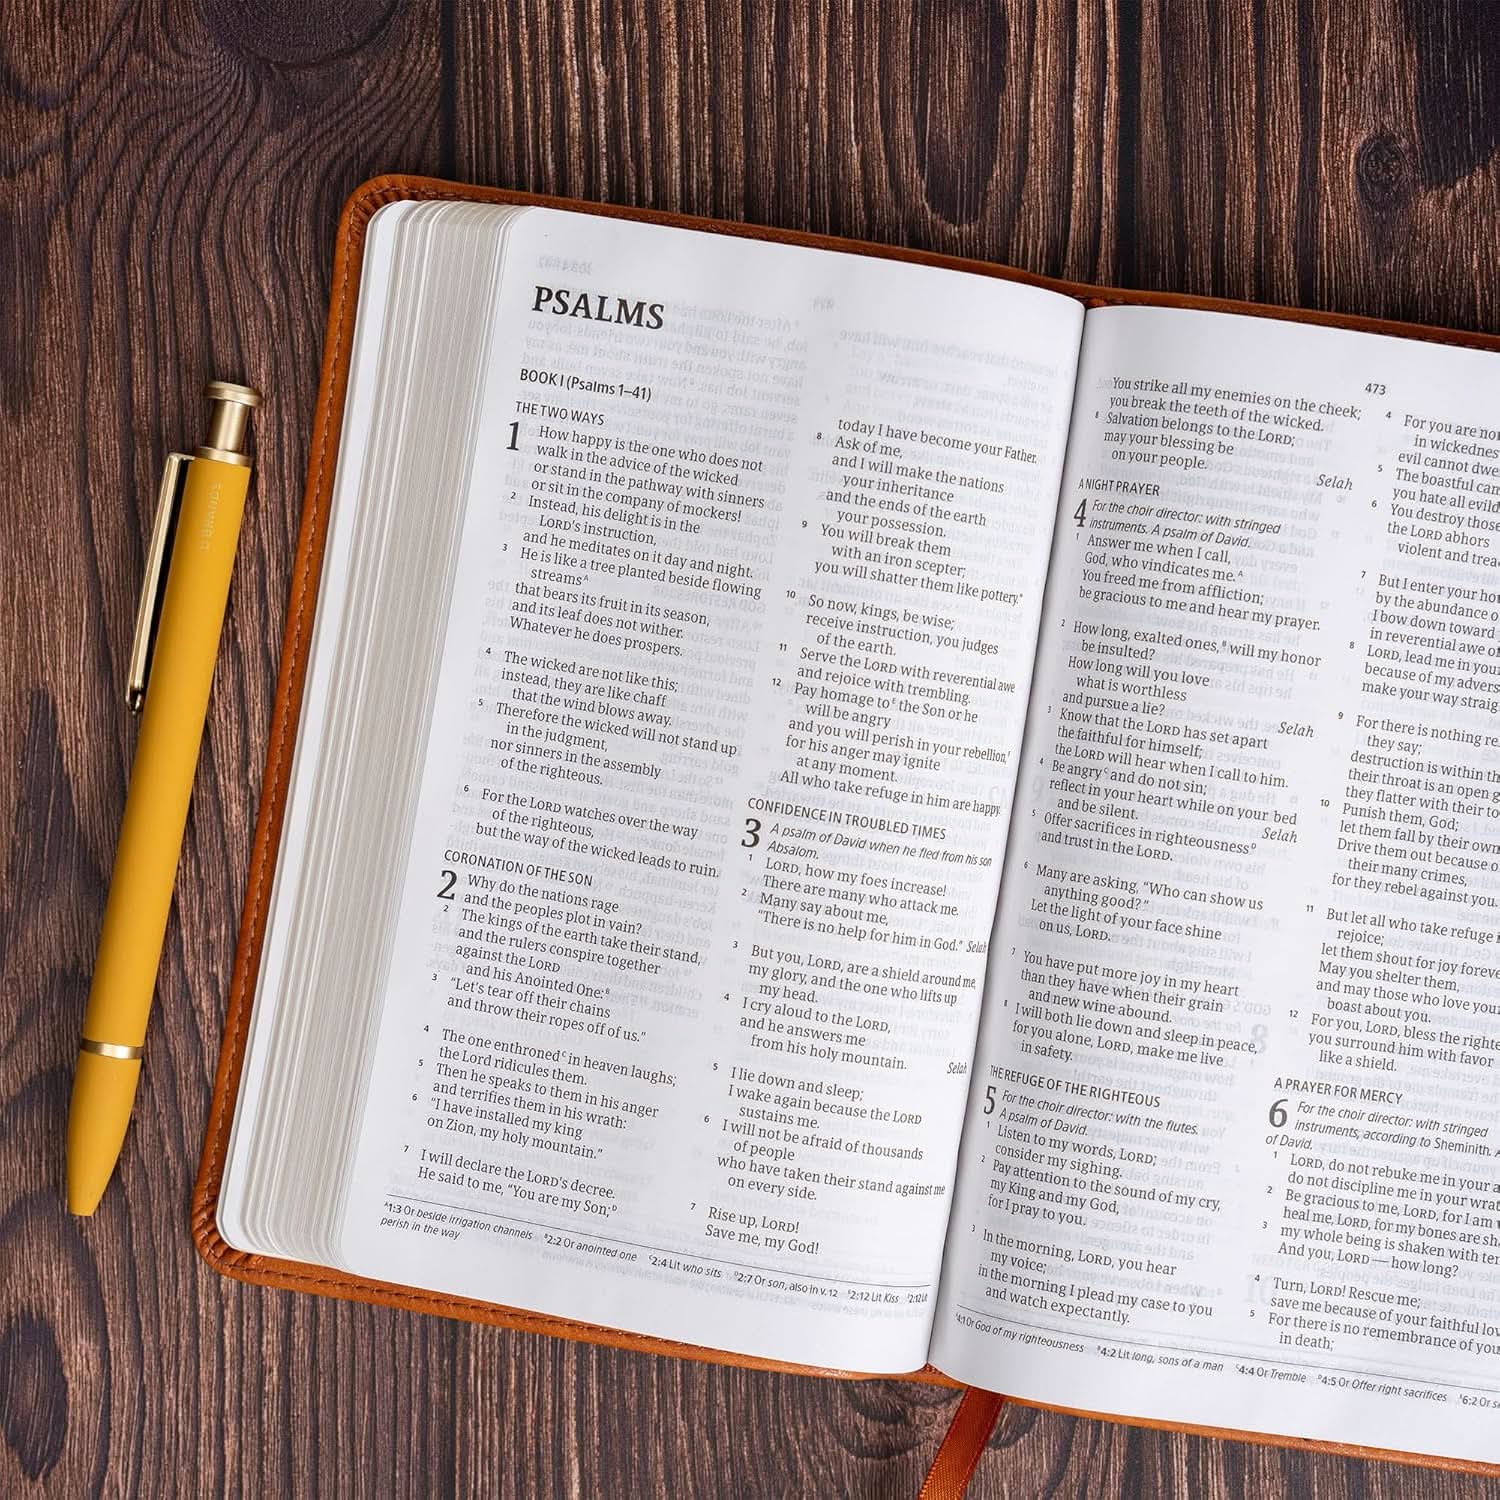 D BRANDS
PSALMS
BOOK I (Psalms 1–41)
THE TWO WAYS
1 How happy is the one who does not
walk in the advice of the wicked
or stand in the pathway with sinners
or sit in the company of mockers!
2 Instead, his delight is in the
LORD's instruction,
and he meditates on it day and night.
3 He is like a tree planted beside flowing
streams^A
that bears its fruit in its season,
and its leaf does not wither.
Whatever he does prospers.
4 The wicked are not like this;
instead, they are like chaff
that the wind blows away.
5 Therefore the wicked will not stand up
in the judgment,
nor sinners in the assembly
of the righteous.
6 For the LORD watches over the way
of the righteous,
but the way of the wicked leads to ruin.
CORONATION OF THE SON
2 Why do the nations rage
and the peoples plot in vain?
2 The kings of the earth take their stand,
and the rulers conspire together
against the LORD
and his Anointed One:^B
3 “Let's tear off their chains
and throw their ropes off of us.”
4 The one enthroned^C in heaven laughs;
the Lord ridicules them.
5 Then he speaks to them in his anger
and terrifies them in his wrath:
6 “I have installed my king
on Zion, my holy mountain.”
7 I will declare the LORD's decree.
He said to me, “You are my Son;^D
today I have become your Father.
8 Ask of me,
and I will make the nations
your inheritance
and the ends of the earth
your possession.
9 You will break them
with an iron scepter;
you will shatter them like pottery.”
10 So now, kings, be wise;
receive instruction, you judges
of the earth.
11 Serve the LORD with reverential awe
and rejoice with trembling.
12 Pay homage to^E the Son or he
will be angry
and you will perish in your rebellion,^F
for his anger may ignite
at any moment.
All who take refuge in him are happy.
CONFIDENCE IN TROUBLED TIMES
3 A psalm of David when he fled from his son
Absalom.
1 LORD, how my foes increase!
There are many who attack me.
2 Many say about me,
“There is no help for him in God.” Selah
3 But you, LORD, are a shield around me,
my glory, and the one who lifts up
my head.
4 I cry aloud to the LORD,
and he answers me
from his holy mountain. Selah
5 I lie down and sleep;
I wake again because the LORD
sustains me.
6 I will not be afraid of thousands
of people
who have taken their stand against me
on every side.
7 Rise up, LORD!
Save me, my God!
^A1:3 Or beside irrigation channels ^B2:2 Or anointed one ^C2:4 Lit who sits ^D2:7 Or son, also in v. 12 ^E2:12 Lit Kiss ^F2:12 Lit
perish in the way
473
You strike all my enemies on the cheek;
you break the teeth of the wicked.
8 Salvation belongs to the LORD;
may your blessing be
on your people. Selah
A NIGHT PRAYER
4 For the choir director: with stringed
instruments. A psalm of David.
1 Answer me when I call,
God, who vindicates me.^A
You freed me from affliction;
be gracious to me and hear my prayer.
2 How long, exalted ones,^B will my honor
be insulted?
How long will you love
what is worthless
and pursue a lie? Selah
3 Know that the LORD has set apart
the faithful for himself;
the LORD will hear when I call to him.
4 Be angry^C and do not sin;
reflect in your heart while on your bed
and be silent. Selah
5 Offer sacrifices in righteousness^D
and trust in the LORD.
6 Many are asking, “Who can show us
anything good?”
Let the light of your face shine
on us, LORD.
7 You have put more joy in my heart
than they have when their grain
and new wine abound.
8 I will both lie down and sleep in peace,
for you alone, LORD, make me live
in safety.
THE REFUGE OF THE RIGHTEOUS
5 For the choir director: with the flutes.
A psalm of David.
1 Listen to my words, LORD;
consider my sighing.
2 Pay attention to the sound of my cry,
my King and my God,
for I pray to you.
3 In the morning, LORD, you hear
my voice;
in the morning I plead my case to you
and watch expectantly.
4 For you are not
in wickedness
evil cannot dwe
5 The boastful can
you hate all evild
6 You destroy those
the LORD abhors
violent and trea
7 But I enter your hou
by the abundance o
I bow down toward
in reverential awe of
8 LORD, lead me in your
because of my advers
make your way straig
9 For there is nothing re
they say;
destruction is within th
their throat is an open g
they flatter with their to
10 Punish them, God;
let them fall by their own
Drive them out because o
their many crimes,
for they rebel against you.
11 But let all who take refuge i
rejoice;
let them shout for joy foreve
May you shelter them,
and may those who love your
boast about you.
12 For you, LORD, bless the righte
you surround him with favor
like a shield.
A PRAYER FOR MERCY
6 For the choir director: with stringed
instruments, according to Sheminith. A
of David.
1 LORD, do not rebuke me in your a
do not discipline me in your wrat
2 Be gracious to me, LORD, for I am w
heal me, LORD, for my bones are sh
3 my whole being is shaken with ter
And you, LORD — how long?
4 Turn, LORD! Rescue me;
save me because of your faithful lov
5 For there is no remembrance of you
in death;
^A4:1 Or God of my righteousness ^B4:2 Lit long, sons of a man ^C4:4 Or Tremble ^D4:5 Or Offer right sacrifices ^E6:2 Or s